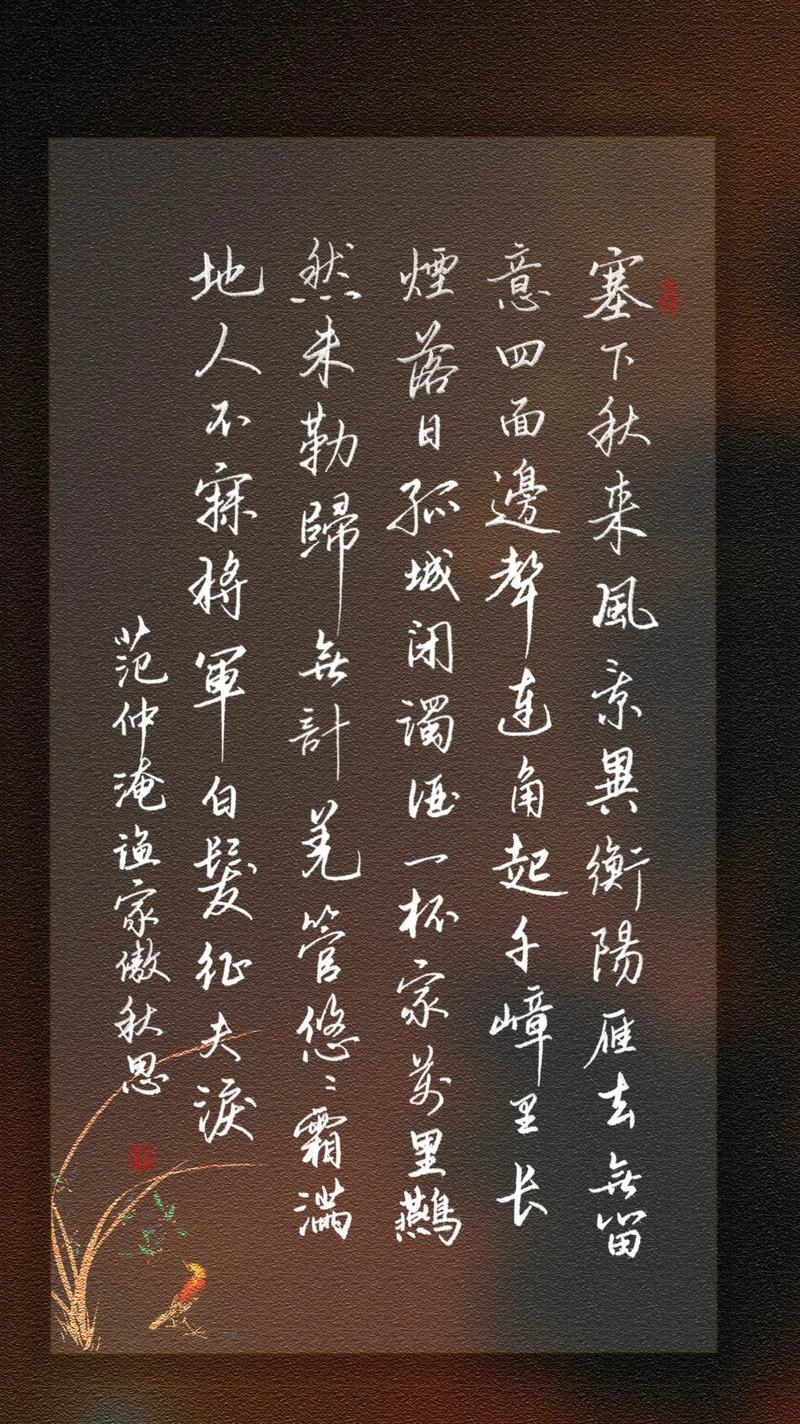 塞下秋来風景異衡陽雁去無留
意四面邊聲連角起千嶂里长
煙落日孤城闭濁酒一杯家萬里鷰
然未勒歸無計羌管悠〻霜满
地人不寐将軍白髮征夫淚
范仲淹渔家傲秋思